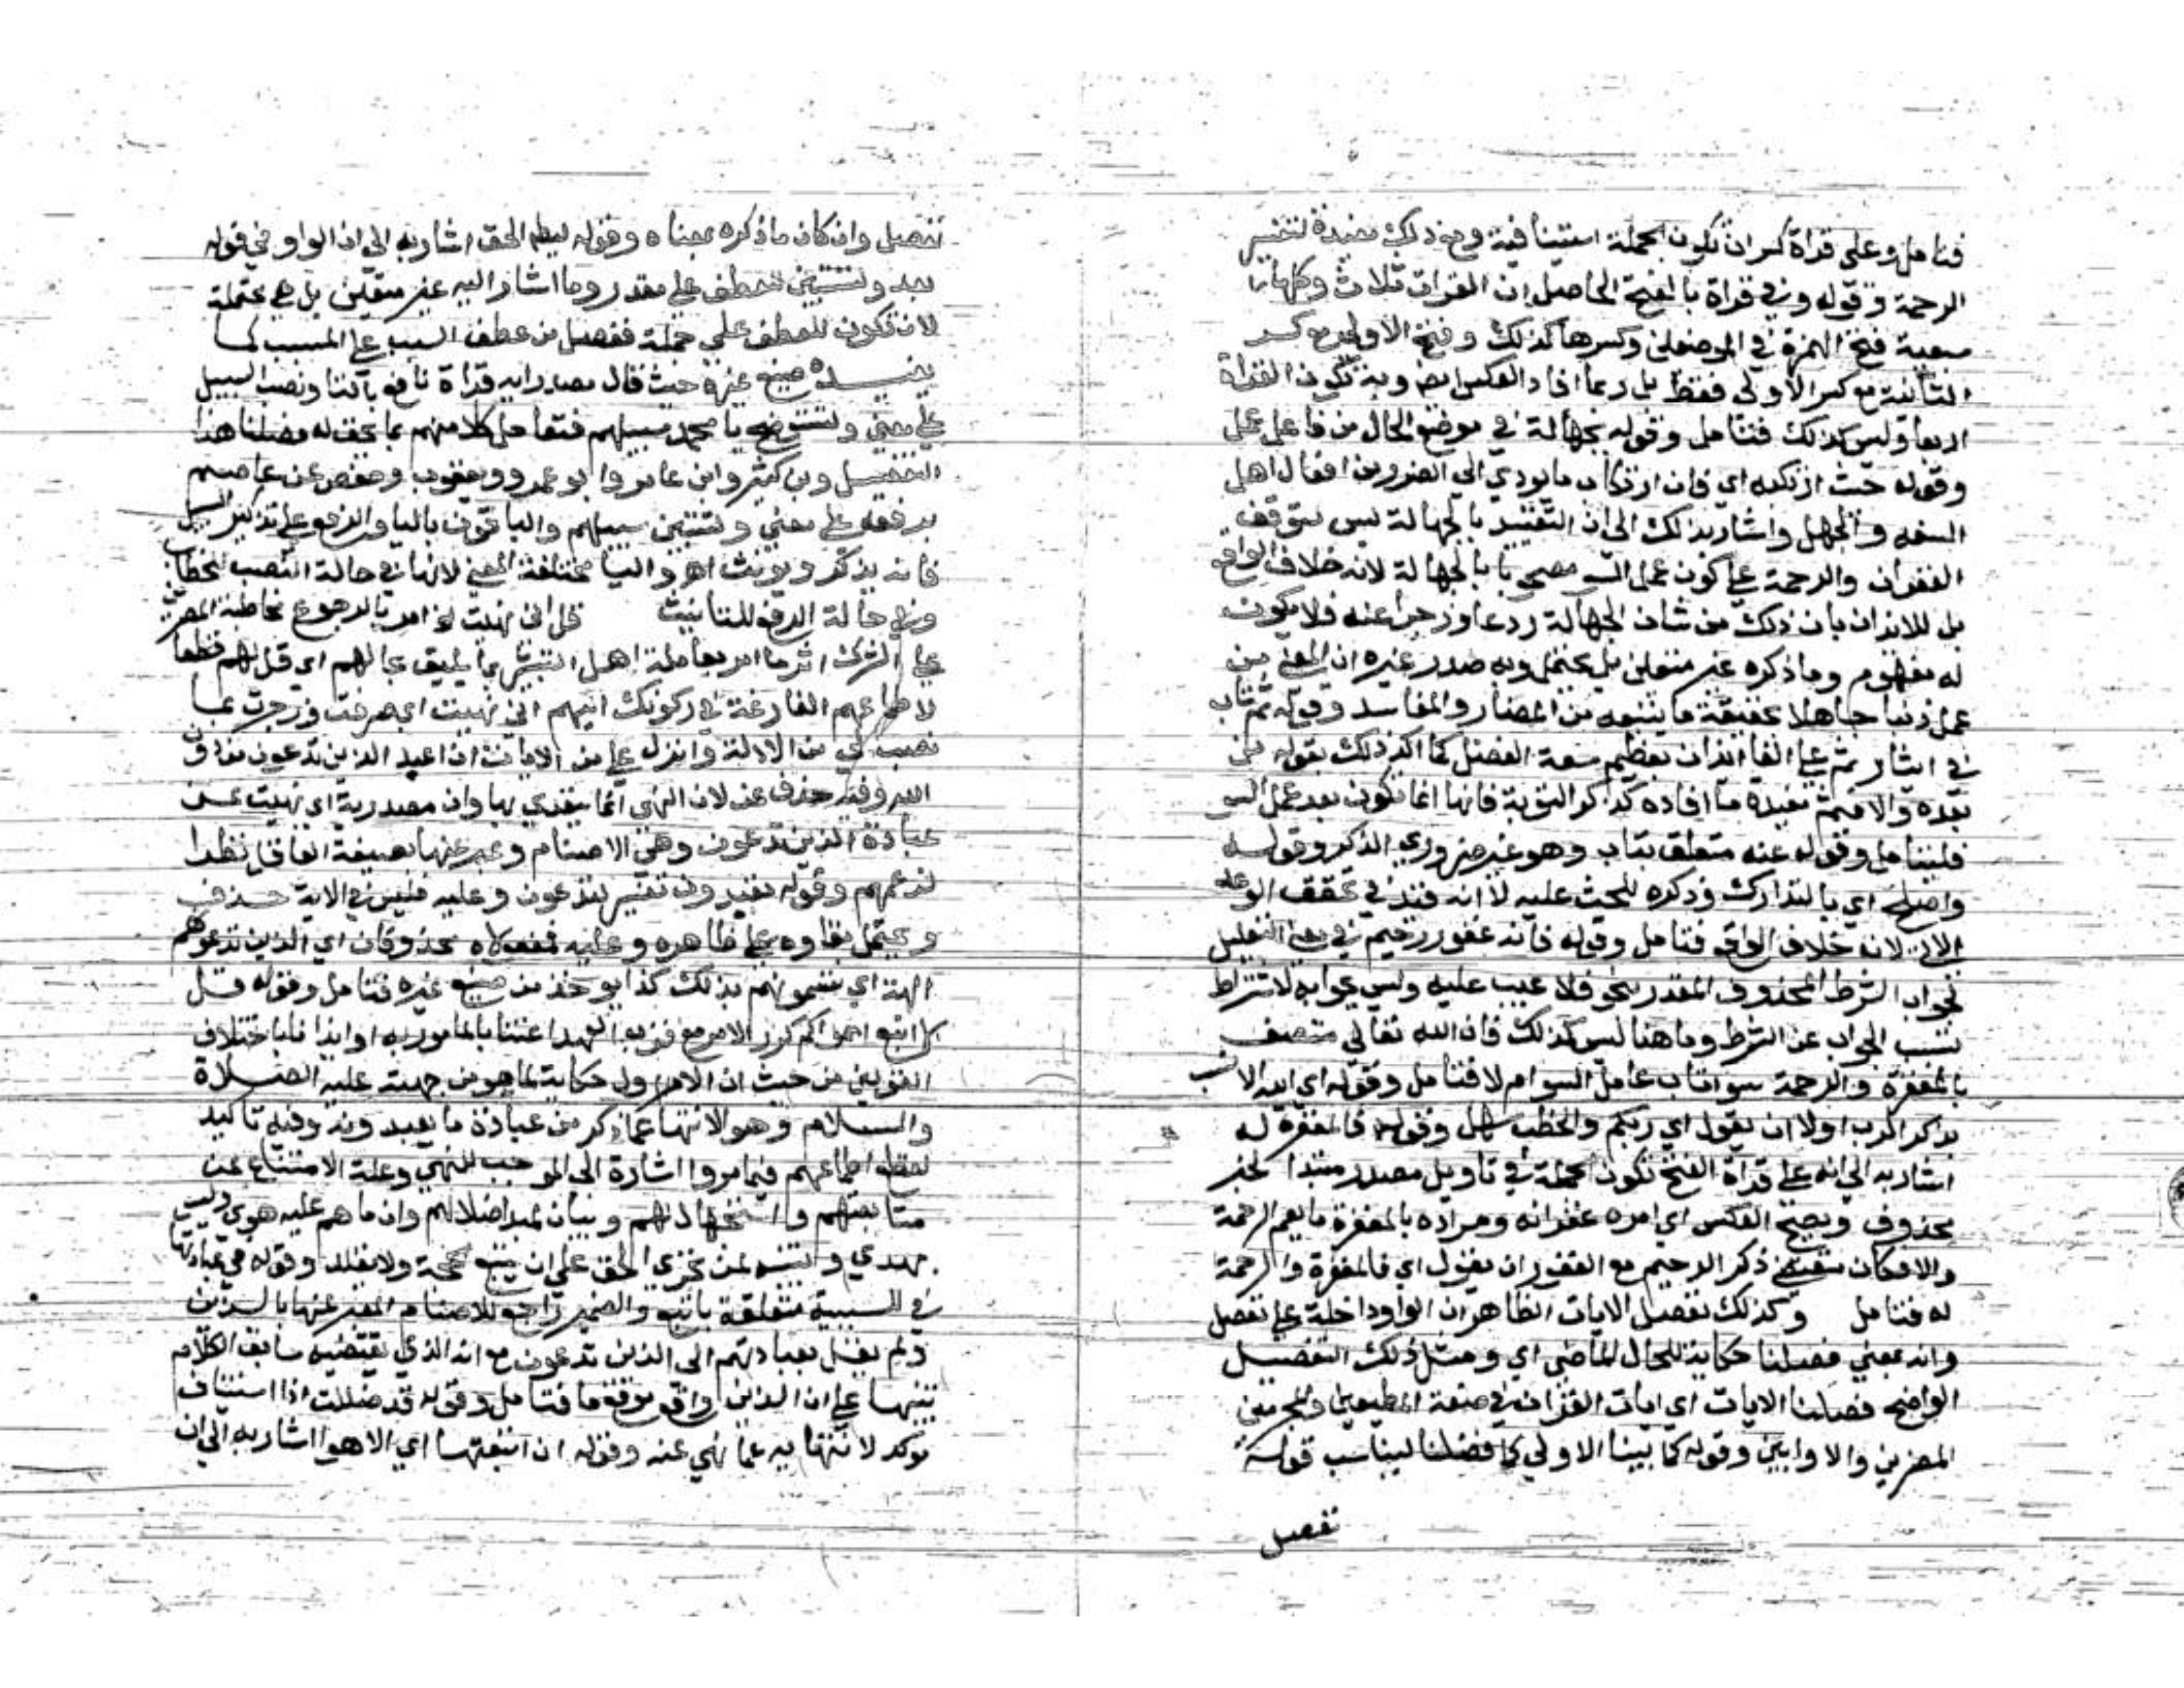 فتامل وعلى قراة كسران تكون الجملة استينافية ومع ذلك مفيدة لتفسير
الرحمة وقوله وفي قراة بالفتح الحاصل ان القراات ثلاث وكلها
سبعية فتح الهمزة في الموضعين وكسرها كذلك وفتح الاولى مع كسر
الثانية مع كسر الاولى فقط بل ربما افاد العكس ايضا وبه تكون القراة
اربعا وليس كذلك فتامل وقوله بجهالة في موضع الحال من فاعل عمل
وقوله حيث ارتكبه اي فان ارتكاب ما يودي الى الضرر من افعال اهل
السفه والجهل واشار بذلك الى ان التقييد بالجهالة ليس لتوقف
الغفران والرحمة على كون عمل السو مصحوبا بالجهالة لانه خلاف الواقع
بل للايذان بان ذلك من شان الجهالة ردعا وزجرا عنه فلا يكون
له مفهوم وما ذكره غير متعين بل يحتمل وبه صدر غيره ان المعنى من
عمل ذنبا جاهلا بحقيقة ما يتبعه من المضار والمفاسد وقوله ثم تاب
في ايثار ثم على الفا ايذان بعظيم سعة الفضل كما اكد ذلك بقوله من
بعده والا فثم مفيدة ما افاده كذكر التوبة فانها انما تكون بعد عمل السو
فليتامل وقوله عنه متعلق بتاب وهو غير ضروري الذكر وقوله
واصلح اي بالتدارك وذكره للحث عليه لا انه قيد في تحقق الوعد
لانه خلاف الواقع فتامل وقوله فانه غفور رحيم في معنى التعليل
لجواب الشرط المحذوف المقدر بنحو فلا عيب عليه وليس جوابه لاشتراط
تسبب الجواب عن الشرط وما هنا ليس كذلك فان الله تعالى متصف
بالمغفرة والرحمة سوا تاب عامل السو ام لا فتامل وقوله اي الله الانسب
بذكر الرب اولا ان يقول اي ربكم والخطب سهل وقوله فالمغفرة له
اشار به الى انه على قراة الفتح تكون الجملة في تاويل مصدر مبتدا لخبر
محذوف ويصح العكس اي امره غفرانه ومراده بالمغفرة ما يعم الرحمة
والا فكان مقتضى ذكر الرحيم مع الغفور ان يقول اي فالمغفرة والرحمة
له فتامل وكذلك نفصل الايات الظاهر ان الواو داخلة على نفصل
وانه بمعنى فصلنا حكاية للحال الماضي اي ومثل ذلك التفصيل
الواضح فصلنا الايات اي ايات القران في صفة المطيعين والمجرمين
المصرين والاوابين وقوله كما بينا الاولى كما فصلنا ليناسب قوله
نفصل
نفصل وان كان ما ذكره بمعناه وقوله ليظهر الحق اشار به الى ان الواو في قوله
بعد ولتستبين للعطف على مقدر وما اشار اليه غير متعين بل هي محتملة
لان تكون للعطف على جملة نفصل من عطف السبب على المسبب كما
يفيده صنيع غيره حيث قال مصدرا به قراة نافع بالتا ونصب السبيل
على معنى ولتستوضح يا محمد سبيلهم فتعامل كلا منهم بما يحق له فصلنا هذا
التفصيل وبن كثير وابن عامر وابو عمرو ويعقوب وحفص عن عاصم
برفعه على معنى ولتتبين سبيلهم والباقون باليا والرفع على تذكير السبيل
فانه يذكر ويونث اهـ والتا مختلفة المعنى لانها في حالة النصب للخطاب
وفي حالة الرفع للتانيث قل اني نهيت امر بالرجوع مخاطبة المصرين
على الشرك اثر ما امر بمعاملة اهل التبشير بما يليق بحالهم اي قل لهم قطعا
لاطماعهم الفارغة في ركونك اليهم اني نهيت اي صرفت وزجرت بما
نصب لي من الادلة وانزل علي من الايات ان اعبد الذين تدعون
الله وفيه حذف عن لان النهي انما يتعدى بها وان مصدرية اي نهيت عن
عبادة الذين تدعون وهي الاصنام وعبر عنها بصيغة العاقل نظرا
لزعمهم وقوله تعبدون تفسير لتدعون وعليه فليس في الاية حذف
ويحتمل بقاوه على ظاهره وعليه فمفعولاه محذوفان اي الذين تدعوهم
الهة اي تسمونهم بذلك كذا يوخذ من صنيع غيره فتامل وقوله قل
لا اتبع اهواكم كرر الامر مع قرب العهد اعتنا بالمامور به او ايذانا باختلاف
القولين من حيث ان الاول حكاية لما هو من جهته عليه الصلاة
والسلام وهو الانتها عما ذكر من عبادة ما يعبدونه وفيه تاكيد
لقطع اطماعهم فيما مر واشارة الى الموجب للنهي وعلة الامتناع عن
متابعتهم واستجهال لهم وبيان لمبدا ضلالهم وان ما هم عليه هوى وليس
بهدى وتنبيه لمن تحرى الحق على ان يتبع الحجة ولا يقلد وقوله في عبادتها
في للسببية متعلقة باتبع والضمير راجع للاصنام المعبر عنها بالذين
ولم يقل بعبادتهم الى الذين تدعون مع انه الذي يقتضيه سابق الكلام
تنبيها على ان الذين واقع موقع ما فتامل وقوله قد ضللت اذا استيناف
موكد لانتهايه عما نهي عنه وقوله ان اتبعتها اي الاهوا اشار به الى ان